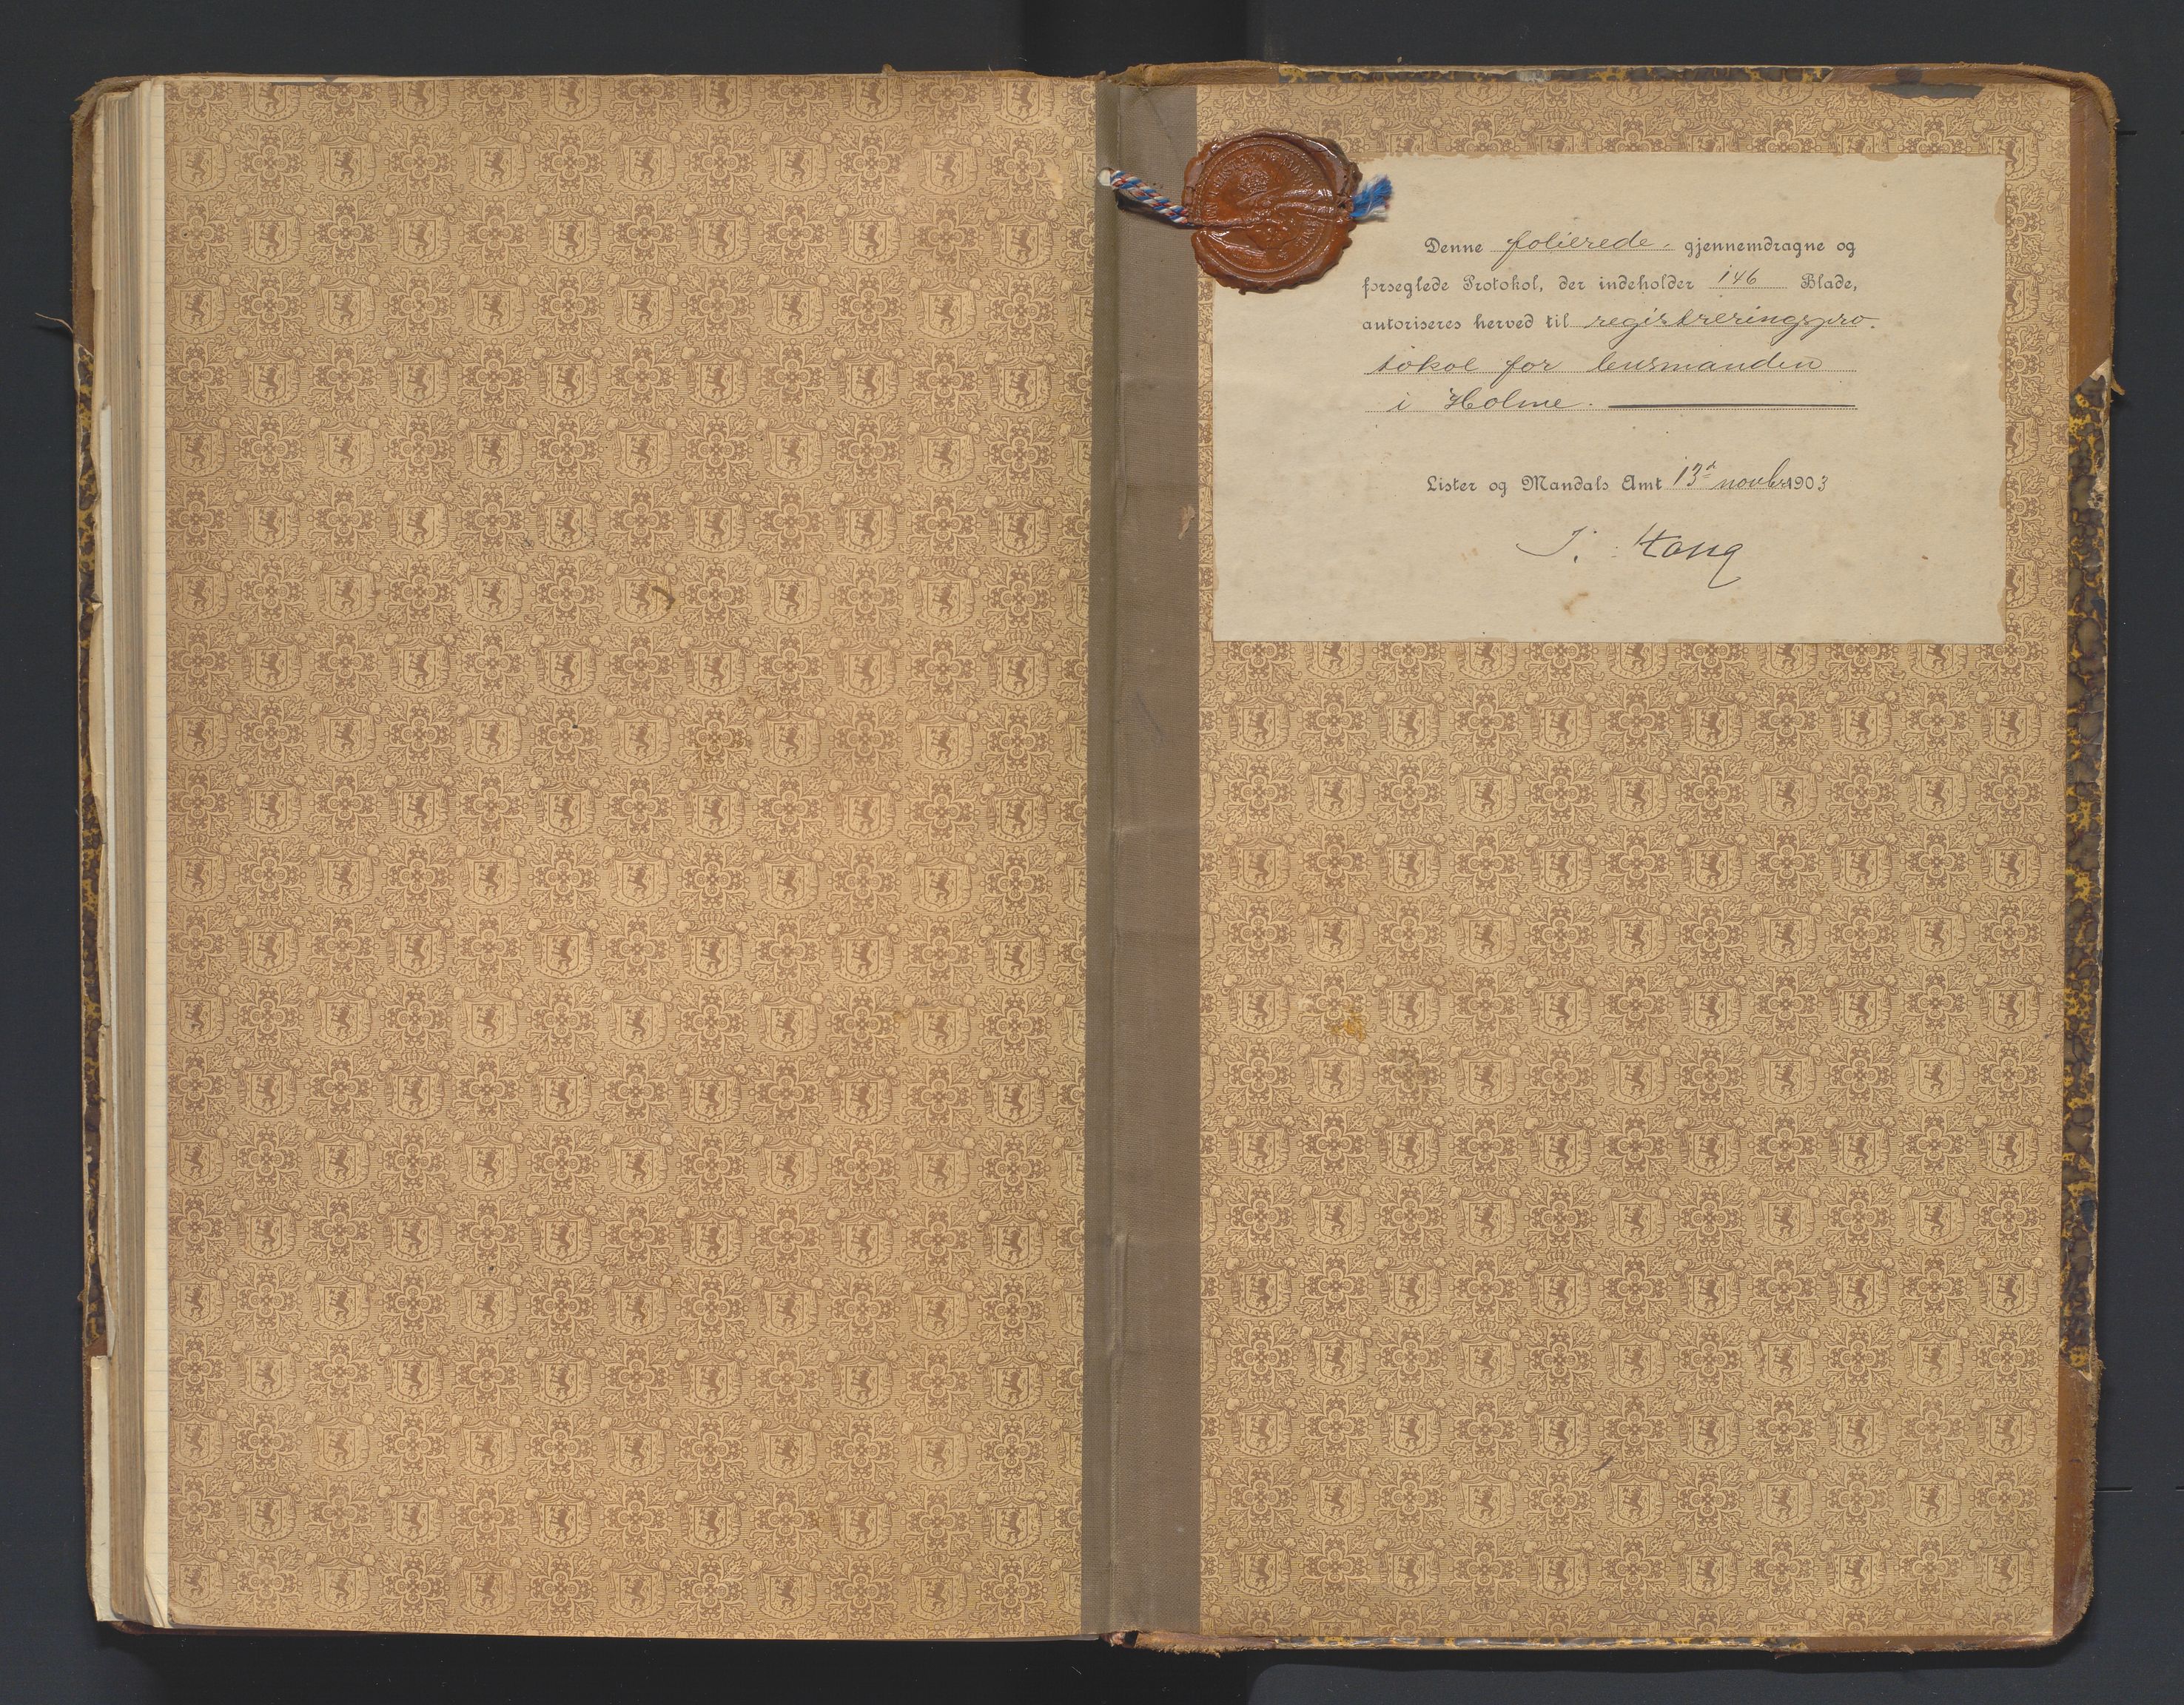 Denne foliérede, gjennemdragne og
forseglede Protokol, der indeholder 146 Blade,
autoriseres herved til registreringspro-
tokol for lensmanden
i Holme.
Lister og Mandals Amt 13de novbr 1903